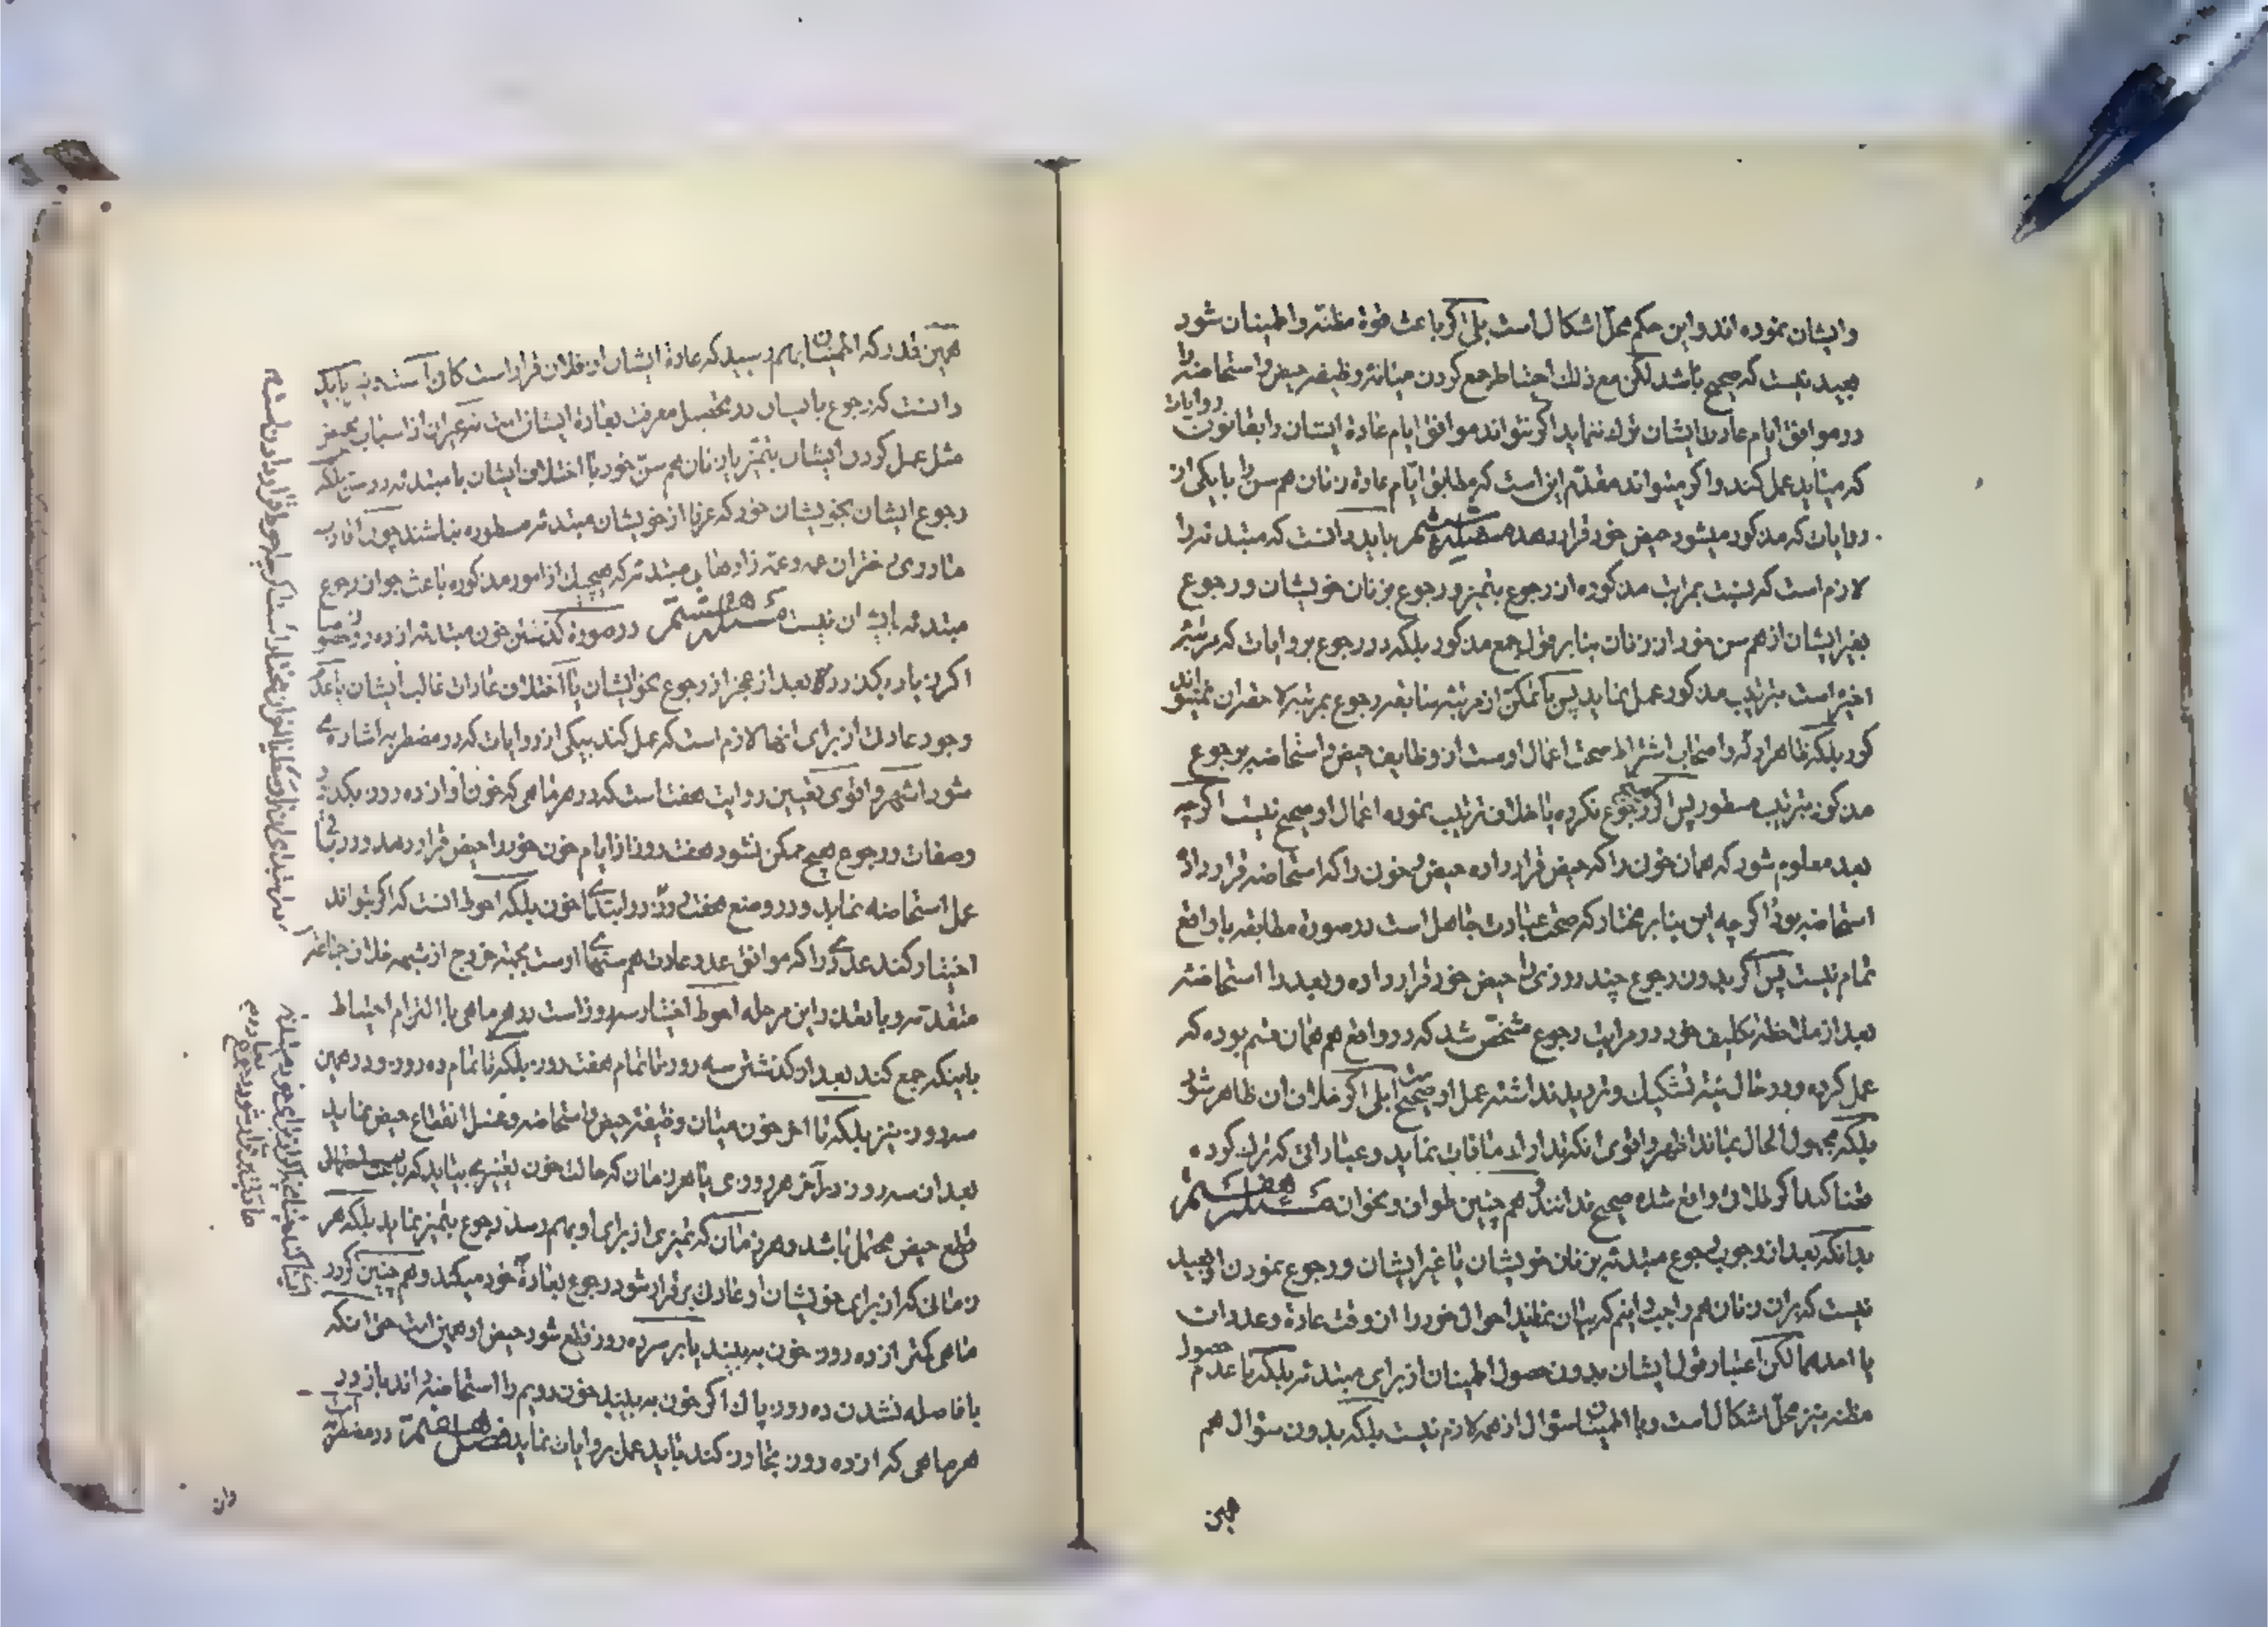 وایشان نموده اند و این حکم محل اشکال است بلی اکر باعث قوة مظنه و اطمینان شود
بعید نیست که صحیح باشد لکن مع ذلك احتیاط جمع کردن میانه وظیفه حیض و استحاضه را
در موافق ایام عادة ایشان ترك ننماید اکر بتواند موافق ایام عادة ایشان و ایقانون روایات
که میباید عمل کند و اکر میتواند مقدم این است که مطابق ایام عادة زنان هم سن را با یکی از
روایات که مذکور میشود حیض خود قرار دهد مسئله ششم باید دانست که مبتدئه را
لازم است که نسبت بمراتب مذکوره از رجوع بتمیز و رجوع بزنان خویشان و رجوع
بغیر ایشان از هم سن خود از زنان بنابر قول جمع مذکور بلکه در رجوع بروایات که مرتبه
اخیره است بترتیب مذکور عمل نماید پس با تمکن از مرتبه سابقه رجوع بمرتبه لاحقه ان نمیتواند
کرد بلکه ظاهر ادله و اصحاب اشتراط صحت اعمال اوست از وظایف حیض و استحاضه برجوع
مذکور بترتیب مسطور پس اکر رجوع نکرده یا خلاف ترتیب نموده اعمال او صحیح نیست اکرچه
بعد معلوم شود که همان خون را که حیض قرار داده حیض و خون را که استحاضه قرار داده
استحاضه بوده اکرچه این بنابر مختار که صحت عبادت جاهل است در صورة مطابقه با واقع
تمام نیست پس اکر بدون رجوع چند روزی را حیض خود قرار داده و بعد را استحاضه
بعد از ملاحظه تکلیف خود در مراتب رجوع مشخص شد که در واقع هم همان قسم بوده که
عمل کرده و در حال نیة تشکیك و تردید نداشته عمل او صحیح است بلی اکر خلاف ان ظاهر شود
بلکه مجهول الحال بماند اظهر و اقوی انکه باید اعاده مافات نماید و عباداتی که ترك کرده
قضا کند اکر طلاقی واقع شده صحیح ندانند و هم چنین طواف و نحو ان مسئله هفتم
بدانکه بعد از وجوب رجوع مبتدئه بزنان خویشان یا غیر ایشان و رجوع نمودن او بعید
نیست که بران زنان هم واجب باشد که بیان نمایند احوال خود را از وقت عادة و عدد ان
یا احدهما لکن اعتبار قول ایشان بدون حصول اطمینان از برای مبتدئه بلکه با عدم حصول
مظنه نیز محل اشکال است و با اطمینان سؤال از همه لازم نیست بلکه بدون سؤال هم
همین
همین قدر که اطمینان بهم رسید که عادة ایشان از فلان قرار است کافی است و نیز باید
دانست که رجوع بایشان در تحصیل معرفت بعادة ایشان است نه غیر ان از اسباب تحیض
مثل عمل کردن ایشان بتمیز یا زنان هم سن خود با اختلاف ایشان با مبتدئه در سن بلکه
رجوع ایشان بخویشان خود که عرفا از خویشان مبتدئه مسطوره نباشند چون اقارب
مادری دختران عمه و عمه زادهای مبتدئه که هیچیك از امور مذکوره باعث جواز رجوع
مبتدئه بایشان نیست مسئله هشتم در صورة کذشتن خون مبتدئه از ده روز خصوصا
اکر زیاده بکذرد بعد از عجز از رجوع بخویشان یا اختلاف عادات غالب ایشان یا عدم
وجود عادت از برای انها لازم است که عمل کند بیکی از روایات که در مضطربه اشاره
شود اشهر و اقوی تعیین روایت هفت است که در هر ماهی که خون او از ده روز بکذرد
و صفات و رجوع هیچ ممکن نشود هفت روز از ایام خون خود را حیض قرار دهد و در باقی
عمل استحاضه نماید و در وضع هفت روز در ابتدای خون بلکه احوط انست که اکر بتواند
اختیار کند عددی را که موافق عدد عادت هم سنهای اوست بجهة خروج از شبهه خلاف جماعت
متقدمه و یا بعد در این مرحله احوط اختیار سه روز است در هر ماهی با التزام احتیاط
باینکه جمع کند بعد از کذشتن سه روز تا تمام هفت روز بلکه تا تمام ده روز و در همین
سه روز نیز بلکه تا اخر خون میان وظیفه حیض و استحاضه و غسل انقطاع حیض نماید
بعد ان سه روز در آخر هر روزی یا هر زمان که حالت خون تغییری بیابد که باعث احتمال
قطع حیض محتمل باشد و هر زمان که تمیزی از برای او بهم رسد رجوع بتمیز نماید بلکه هر
زمانی که از برای خویشان او عادت برقرار شود رجوع بعادة خود میکند و هم چنین اکر در
ماهی کمتر از ده روز خون به بیند یا بر سر ده روز قطع شود حیض او همین است حتی انکه
با فاصله نشدن ده روز پاك اکر خون به بیند خون دویم را استحاضه داند باز در
هر ماهی که از ده روز تجاوز کند باید عمل بروایات نماید فصل هفتم در مضطربه است
وان